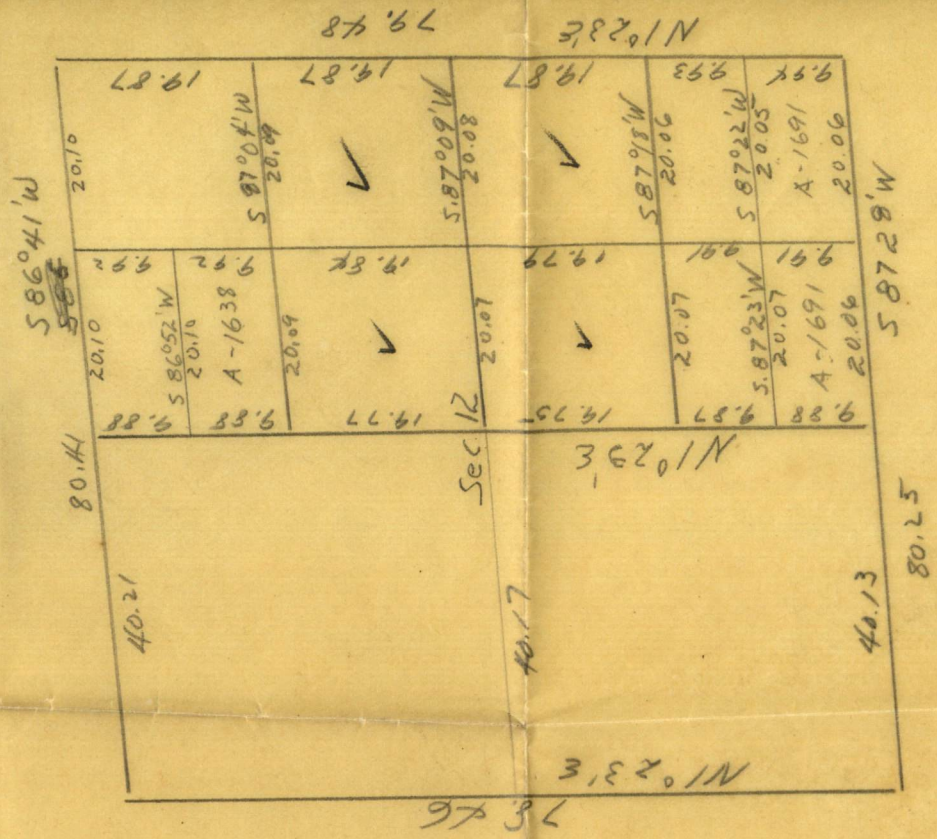 79.48
N1°23'E
19.87
19.87
19.87
9.93
9.94
S 86°41'W
20.10
S 87°04'W
20.09
S.87°09'W
20.08
S 87°18'W
20.06
S 87°22'W
20.05
A-1691
20.06
S 87 28'W
9.92
9.92
19.84
19.79
9.91
9.91
20.10
S 86°52'W
20.10
A-1638
20.09
20.07
20.07
S.87°23'W
20.07
A-1691
20.06
9.88
9.88
19.77
19.75
9.87
9.88
Sec 12
N1°23'E
80.14
80.25
40.21
40.17
40.13
N1°23'E
78.46